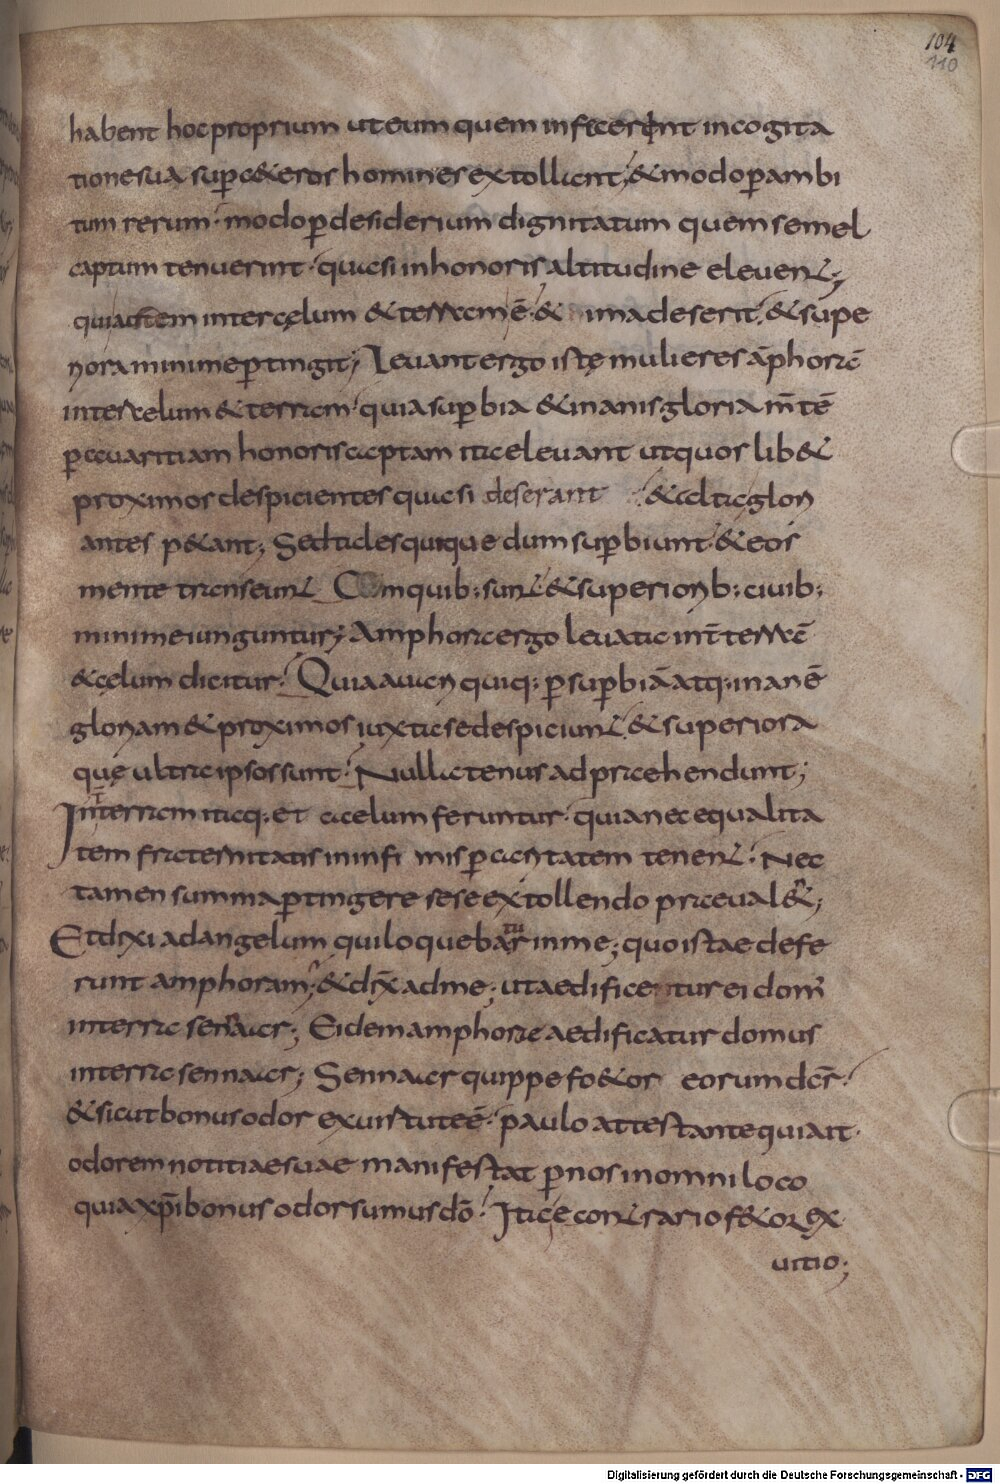 104
110
habent hoc proprium ut eum quem infecerint in cogita
tione sua super ceteros homines extollant; & modo ꝑ ambi
tum rerum· modo ꝑ desiderium dignitatum quem semel
captum tenuerint· quasi in honoris altitudine elevent;
quia autem inter cęlum & terram ē· & ima deserit· & supe
riora minime ꝑtingit; Levant ergo istę mulieres āphorā
inter celum & terram· quia suꝑbia & inanis gloria m̄tē
ꝑ avaritiam honoris captam ita elevant ut quoslib&
proximos despicientes quasi deserant & ad alta glori
antes p&ant; Sed tales quique dum suꝑbiunt· & eos
mente transeunt Cum quib; sunt· & superiorib; civib;
minime iunguntur; Amphora ergo levata int̄ terrā
& cęlum dicitur· Quia avari quiq; ꝑ suꝑbiā atq; inanē
gloriam & proximos iuxta se despiciunt· & superiora
quę ultra ipsos sunt· Nullatenus adprehendunt;
Int̄ terram itaq; et celum feruntur· quia nec equalita
tem fraternitatis in infimis ꝑ caritatem tenent· Nec
tamen summa ꝑtingere sese extollendo prevalent;
Et dixi ad angelum qui loquebatur in me; quo istae defe
runt amphoram; & dix̄ ad me; ut aedificetur ei dom'
in terra sennaar; Eidem amphorae aedificatur domus
in terra sennaar; Sennaar quippe foetor eorum dr̄·
& sicut bonus odor ex virtute ē· paulo attestante qui ait·
odorem notitiae suae manifestat ꝑ nos in omni loco
quia xp̄i bonus odor sumus dō· Ita ę contrario foetor ex
vitio;
Digitalisierung gefördert durch die Deutsche Forschungsgemeinschaft - DFG